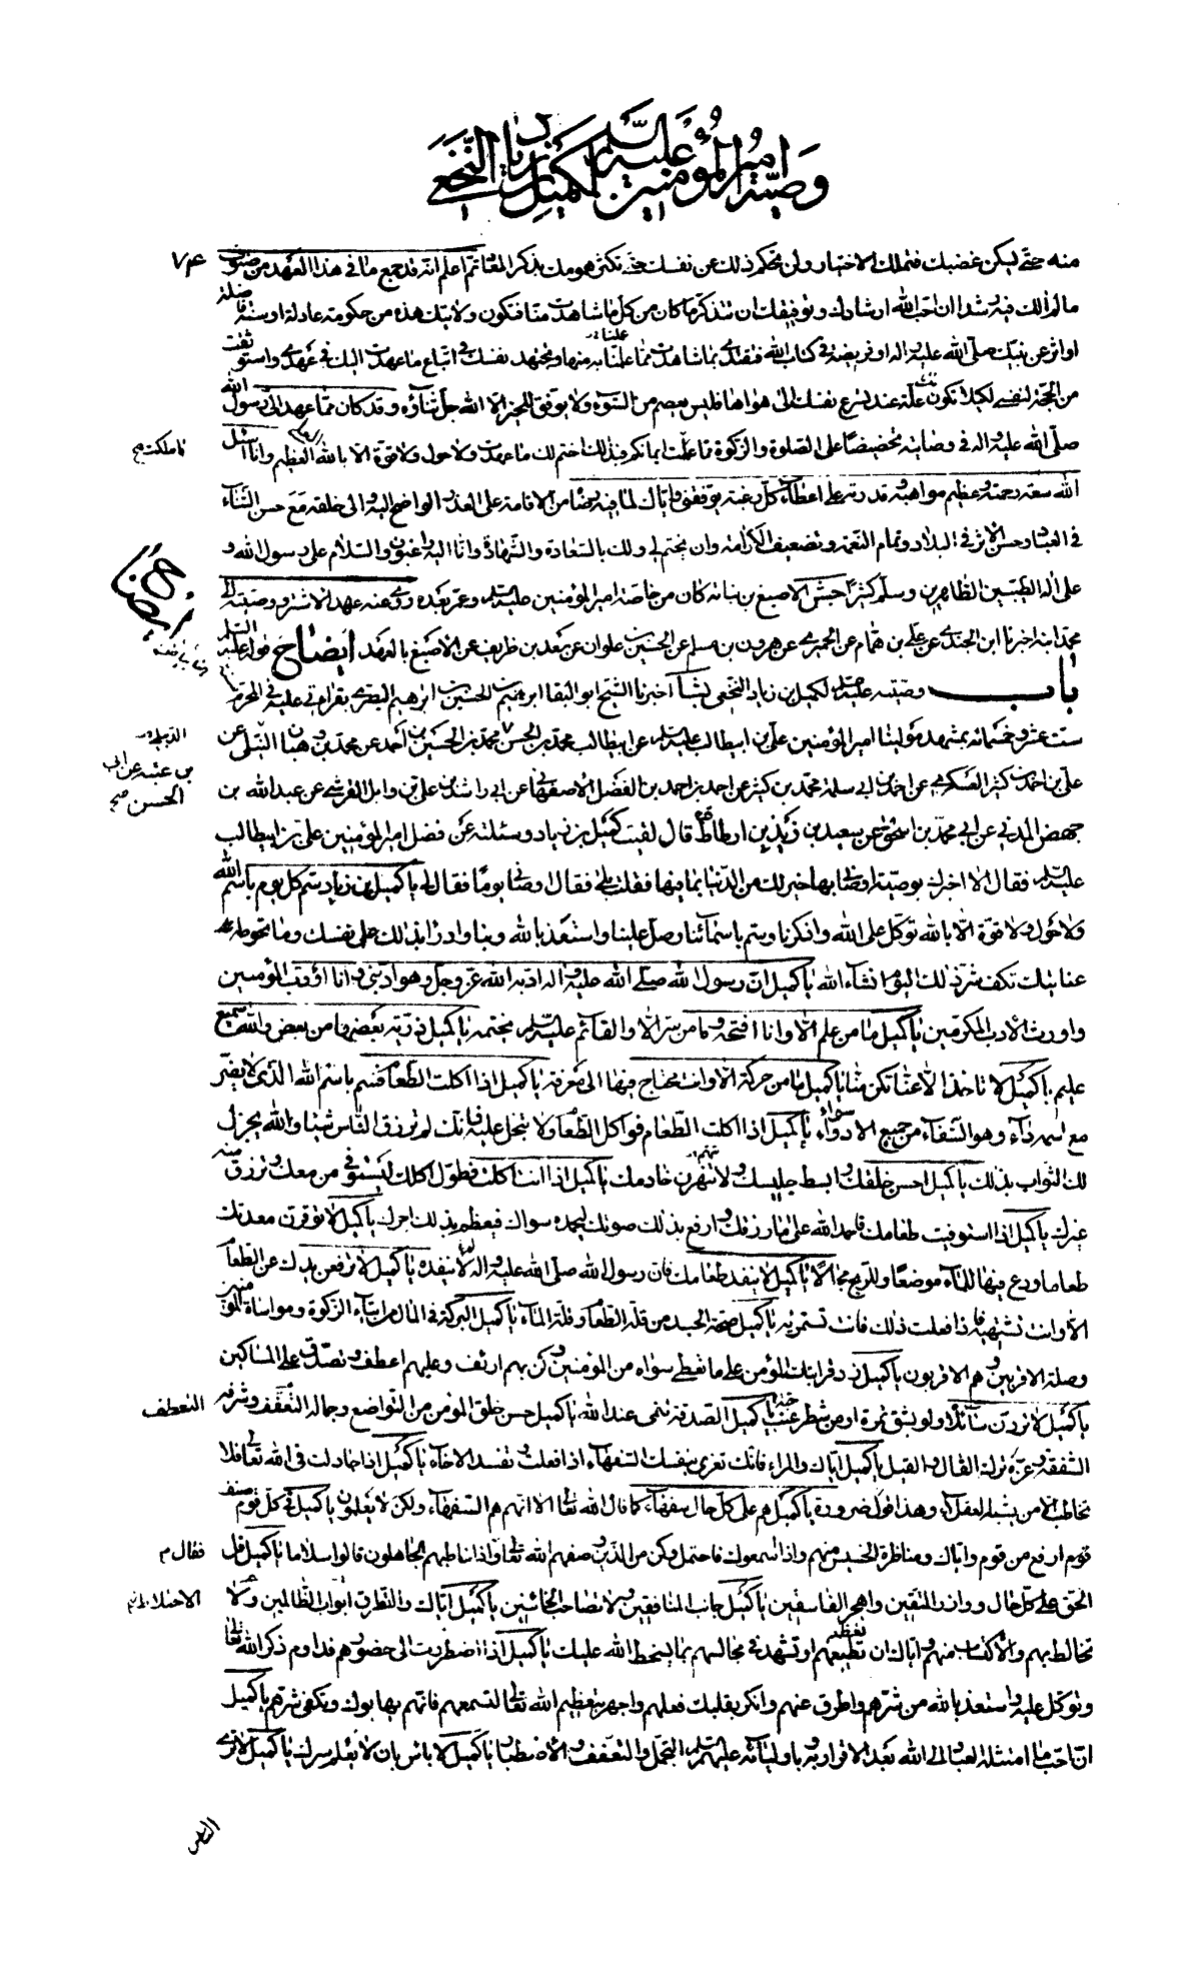 وصية امير المؤمنين عليه السلم لكميل بن زياد النخعي
٧٤
منه حتى يسكن غضبك فتملك الاختيار ولن تحكم ذلك من نفسك حتى تكثر همومك بذكر المعاد ثم اعلم انه قد جمع ما في هذا العهد من صنوف
ما لم آلك فيه رشدا ان احب الله ارشادك وتوفيقك ان تتذكر ما كان من كل ما شاهدت منا فتكون ولايتك هذه من حكومة عادلة او سنة فاضلة
او اثر عن نبيك صلى الله عليه واله او فريضة في كتاب الله فتقتدي بما شاهدت مما علمنا به منها وتجتهد نفسك في اتباع ما عهدت اليك في عهدي واستوثقت
من الحجة لنفسي لكيلا تكون لك علة عند تسرع نفسك الى هواها فليس يعصم من السوء ولا يوفق للخير الا الله جل ثناؤه وقد كان مما عهد الى رسول الله
صلى الله عليه واله في وصايته تحضيضا على الصلوة والزكوة وما ملكت ايمانكم فبذلك اختم لك ما عهدت ولا حول ولا قوة الا بالله العظيم وانا اسئل
ما ملكت صح
الله سعة رحمته وعظيم مواهبه وقدرته على اعطاء كل رغبة ان يوفقني واياك لما فيه رضاه من الاقامة على العذر الواضح اليه والى خلقه مع حسن الثناء
في العباد وحسن الاثر في البلاد وتمام النعمة وتضعيف الكرامة وان يختم لي ولك بالسعادة والشهادة وانا اليه راغبون والسلام على رسول الله و
على اله الطيبين الطاهرين وسلم كثيرا
محمد ابنه اخبرنا ابن الجندي عن علي بن همام عن الحميري عن هرون بن مسلم عن الحسين بن علوان عن سعد بن ظريف عن الاصبغ بالعهد ايضاح قوله عليه السلم
باب وصيته عليه السلم لكميل بن زياد النخعي بشا اخبرنا الشيخ ابو البقا ابرهيم بن الحسين بن ابرهيم البصري بقراءتي عليه في المحرم
ست عشرة وخمسمائة بمشهد مولينا امير المؤمنين علي بن ابيطالب عليه السلم عن ابيطالب محمد بن الحسن
الدبيلي
علي بن احمد بن كثير العسكري عن احمد بن ابي سلمة محمد بن كثير عن احمد بن احمد بن الفضل الاصفهاني عن ابي راشد بن علي بن وايل القرشي عن عبدالله بن
الحسن صح
حفص المدني عن ابي محمد بن اسحق عن سعيد بن زيد بن ارطاة قال لقيت كميل بن زياد وسئلته عن فضل امير المؤمنين علي بن ابيطالب
عليه السلم فقال الا اخبرك بوصية اوصاني بها خير لك من الدنيا بما فيها فقلت بلى فقال اوصاني يوما فقال لي يا كميل بن زياد سم كل يوم باسم الله
ولا حول ولا قوة الا بالله توكل على الله واذكرنا وسم باسمائنا وصل علينا واستعذ بالله وبنا وادرا بذلك على نفسك وما تحوطه
عنايتك تكف شر ذلك اليوم انشاء الله يا كميل ان رسول الله صلى الله عليه واله ادبه الله عز وجل وهو ادبني وانا اؤدب المؤمنين
واورث الادب المكرمين يا كميل ما من علم الا وانا افتحه وما من سر الا والقائم عليه السلم يختمه يا كميل ذرية بعضها من بعض والله سميع
عليم يا كميل لا تاخذ الا عنا تكن منا يا كميل ما من حركة الا وانت محتاج فيها الى معرفة يا كميل اذا اكلت الطعام فسم باسم الله الذي لا يضر
مع اسمه داء وهو الشفاء من جميع الادواء يا كميل اذا اكلت الطعام فواكل الطعام ولا تبخل عليه فانك لم ترزق الناس شيئا والله يجزل
لك الثواب بذلك يا كميل احسن خلقك وابسط جليسك ولا تنهرن خادمك يا كميل اذا انت اكلت فطول اكلك ليستوفي من معك ويرزق منه
غيرك يا كميل اذا استوفيت طعامك فاحمد الله على ما رزقك وارفع بذلك صوتك ليحمده سواك فيعظم بذلك اجرك يا كميل لا توقرن معدتك
طعاما ودع فيها للماء موضعا وللريح مجالا يا كميل لا ينفد طعامك فان رسول الله صلى الله عليه واله لا ينفده يا كميل لا ترفعن يدك عن الطعام
الا وانت تشتهيه فاذا فعلت ذلك فانت تستمريه يا كميل صحة الجسد من قلة الطعام وقلة الماء يا كميل البركة في المال من ايتاء الزكوة ومواساة المؤمنين
وصلة الاقربين وهم الاقربون يا كميل زد قرابتك المؤمن على ما تعطي سواه من المؤمنين وكن بهم اراف وعليهم اعطف وتصدق على المساكين
يا كميل لا تردن سائلا ولو بشق تمرة او من شطر عنب يا كميل الصدقة تنمى عند الله يا كميل حسن خلق المؤمن من التواضع وجماله التعفف وشرفه
التعطف
الشفقة وعزه ترك القال والقيل يا كميل اياك والمراء فانك تغري بنفسك السفهاء اذا فعلت وتفسد الاخاء يا كميل اذا جادلت في الله تعالى فلا
تخاطب الا من يشبه العقلاء وهذا قول ضرورة يا كميل هم على كل حال سفهاء كما قال الله تعالى الا انهم هم السفهاء ولكن لا يعلمون يا كميل في كل قوم صنف
قوم ارفع من قوم واياك ومناظرة الخسيس منهم واذا اسمعوك فاحتمل وكن من الذين وصفهم الله تعالى واذا خاطبهم الجاهلون قالوا سلاما يا كميل قل
فقال م
الحق على كل حال ووازر المتقين واهجر الفاسقين يا كميل جانب المنافقين ولا تصاحب الخائنين يا كميل اياك والتطرق ابواب الظالمين ولا
الاختلاط بهم
تخالط بهم والاكتساب منهم واياك ان تطيعهم او تشهد في مجالسهم بما يسخط الله عليك يا كميل اذا اضطررت الى حضورهم فداوم ذكر الله تعالى
وتوكل عليه واستعذ بالله من شرهم واطرق عنهم وانكر بقلبك فعلهم واجهر بتعظيم الله تعالى لتسمعهم فانهم يهابوك وتكفى شرهم يا كميل
ان احب ما امتثله العباد الى الله بعد الاقرار به وباوليائه عليهم السلم التجمل والتعفف والاصطبار يا كميل لا باس بان لا يعلم سرك يا كميل لا تري
الناس